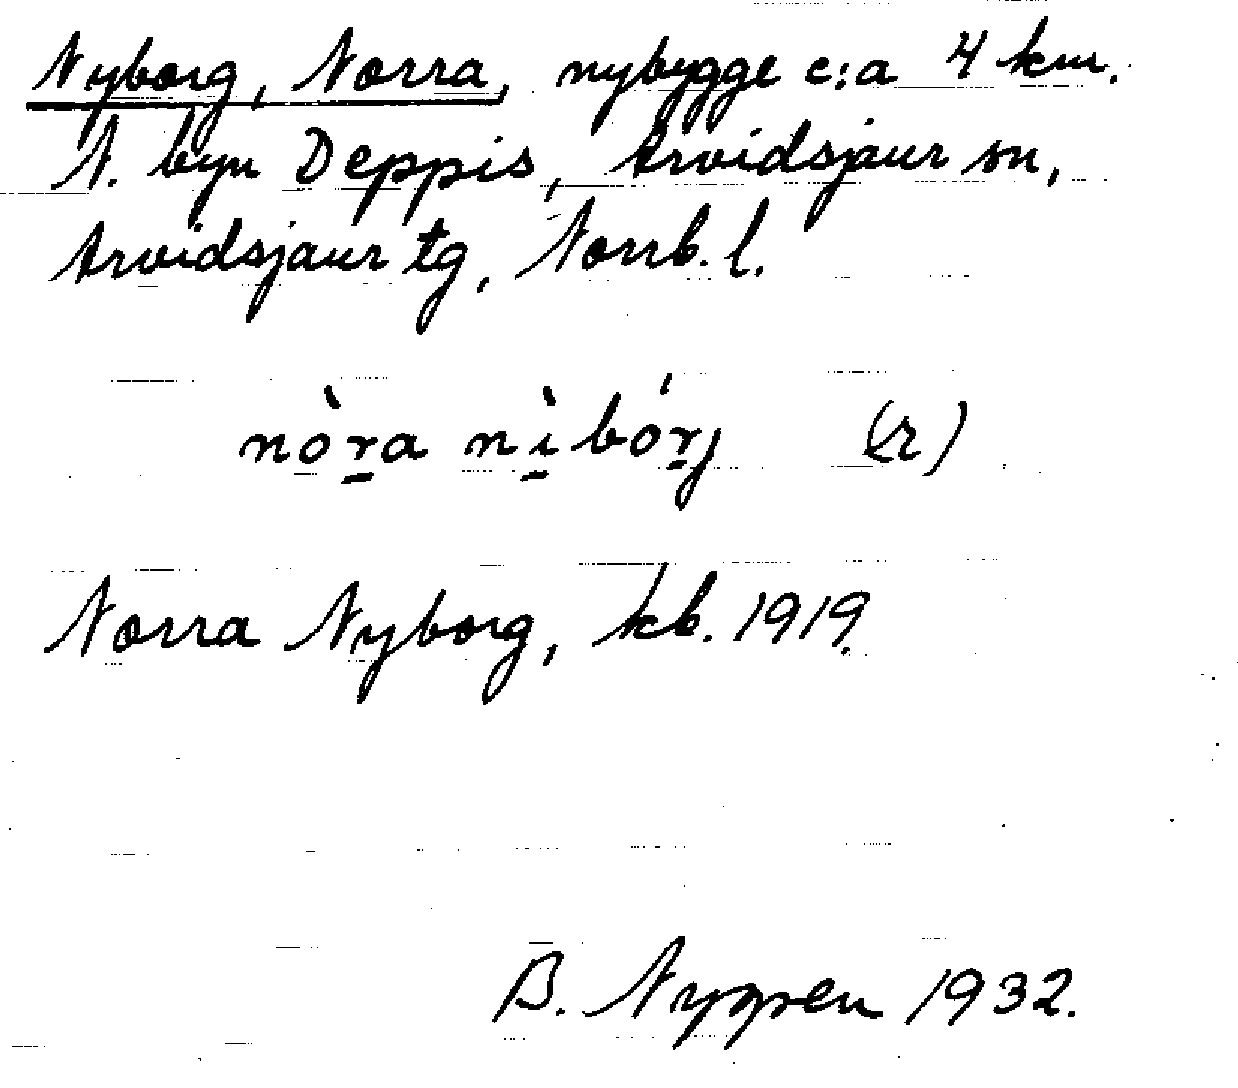 Nyborg, Norra, nybygge c:a 4 km.
N. byn Deppis, Arvidsjaur sn,
Arvidsjaur tg, Norrb. l.
nòr̲a nì̲bór̲j (r)
Norra Nyborg, kb. 1919.
B. Nyppen 1932.